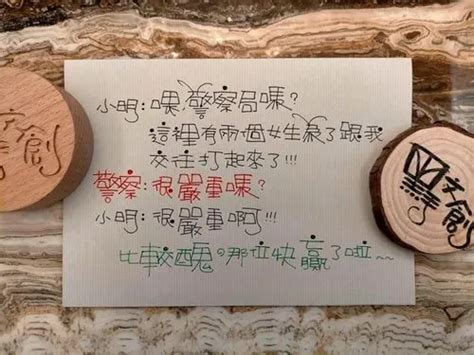 小明：喂，警察局嗎？
這裡有兩個女生為了跟我
交往打起來了!!!
警察：很嚴重嗎？
小明：很嚴重啊!!!
比較醜的那位快贏了啦~~
文創
文創